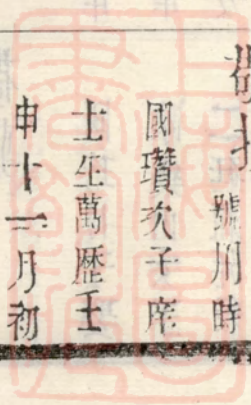 號川時
國瓚次子庠
士生萬歷壬
申十一月初